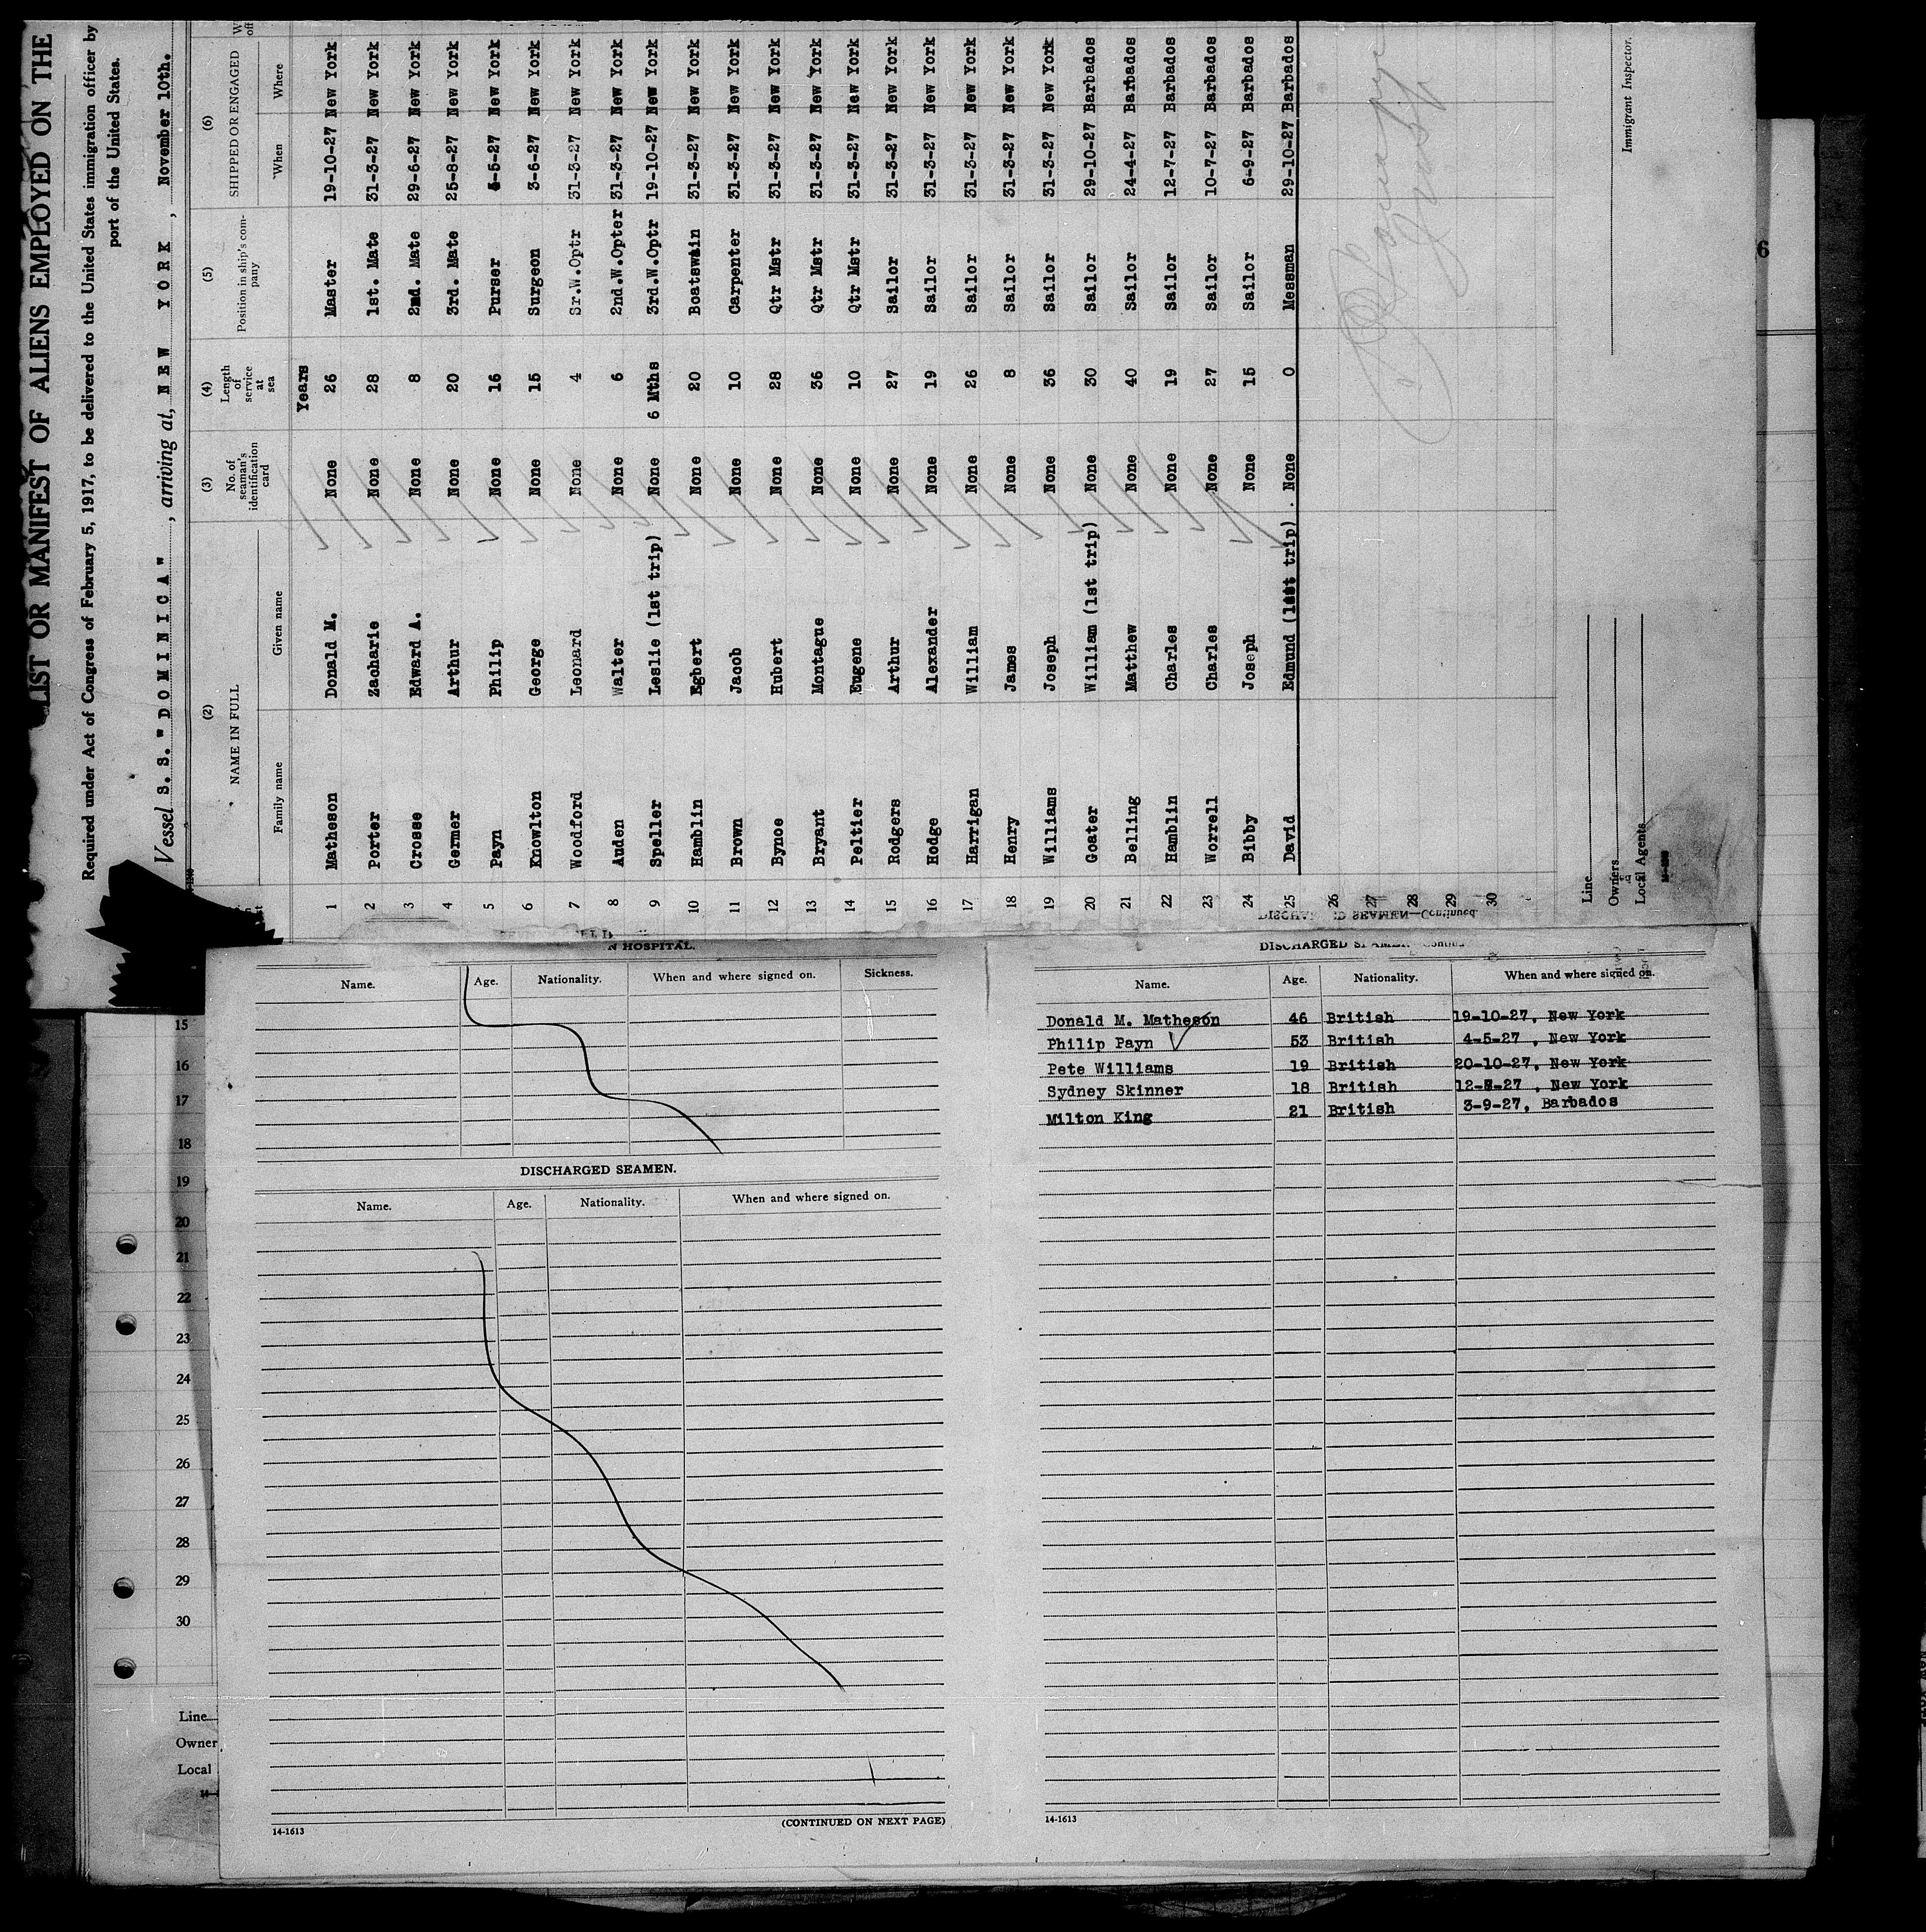 LIST OR MANIFEST OF ALIENS EMPLOYED ON THE
Required under Act of Congress of February 5, 1917, to be delivered to the United States immigration officer by
port of the United States.
Vessel S. S. "DOMINICA" , arriving at, NEW YORK , November 10th.
(2) (3) (4) (5) (6)
NAME IN FULL No. of seaman's identification card Length of service at sea Position in ship's company SHIPPED OR ENGAGED
Family name Given name When Where
Years
1 Matheson Donald M. None 26 Master 19-10-27 New York
2 Porter Zacharie None 28 1st. Mate 31-3-27 New York
3 Crosse Edward A. None 8 2nd. Mate 29-6-27 New York
4 Germer Arthur None 20 3rd. Mate 25-8-27 New York
5 Payn Philip None 16 Purser 4-5-27 New York
6 Knowlton George None 15 Surgeon 3-6-27 New York
7 Woodford Leonard None 4 Sr.W.Optr 31-3-27 New York
8 Auden Walter None 6 2nd.W.Opter 31-3-27 New York
9 Speller Leslie (1st trip) None 6 Mths 3rd.W.Optr 19-10-27 New York
10 Hamblin Egbert None 20 Boatswain 31-3-27 New York
11 Brown Jacob None 10 Carpenter 31-3-27 New York
12 Bynoe Hubert None 28 Qtr Mstr 31-3-27 New York
13 Bryant Montague None 36 Qtr Mstr 31-3-27 New York
14 Peltier Eugene None 10 Qtr Mstr 31-3-27 New York
15 Rodgers Arthur None 27 Sailor 31-3-27 New York
16 Hodge Alexander None 19 Sailor 31-3-27 New York
17 Harrigan William None 26 Sailor 31-3-27 New York
18 Henry James None 8 Sailor 31-3-27 New York
19 Williams Joseph None 36 Sailor 31-3-27 New York
20 Goater William (1st trip) None 30 Sailor 29-10-27 Barbados
21 Belling Matthew None 40 Sailor 24-4-27 Barbados
22 Hamblin Charles None 19 Sailor 12-7-27 Barbados
23 Worrell Charles None 27 Sailor 10-7-27 Barbados
24 Bibby Joseph None 15 Sailor 6-9-27 Barbados
25 David Edmund (1st trip) . None 0 Messman 29-10-27 Barbados
26
27
28
29
30
Line
Owners
Local Agents
Immigrant Inspector.
N HOSPITAL.
Name. Age. Nationality. When and where signed on. Sickness.
DISCHARGED SEAMEN.
Name. Age. Nationality. When and where signed on.
(CONTINUED ON NEXT PAGE)
14-1613
DISCHARGED
Name. Age. Nationality. When and where signed on.
Donald M. Matheson 46 British 19-10-27, New York
Philip Payn 53 British 4-5-27 , New York
Pete Williams 19 British 20-10-27, New York
Sydney Skinner 18 British 12-8-27 , New York
Milton King 21 British 3-9-27, Barbados
14-1613
15
16
17
18
19
20
21
22
23
24
25
26
27
28
29
30
Line
Owner
Local
6